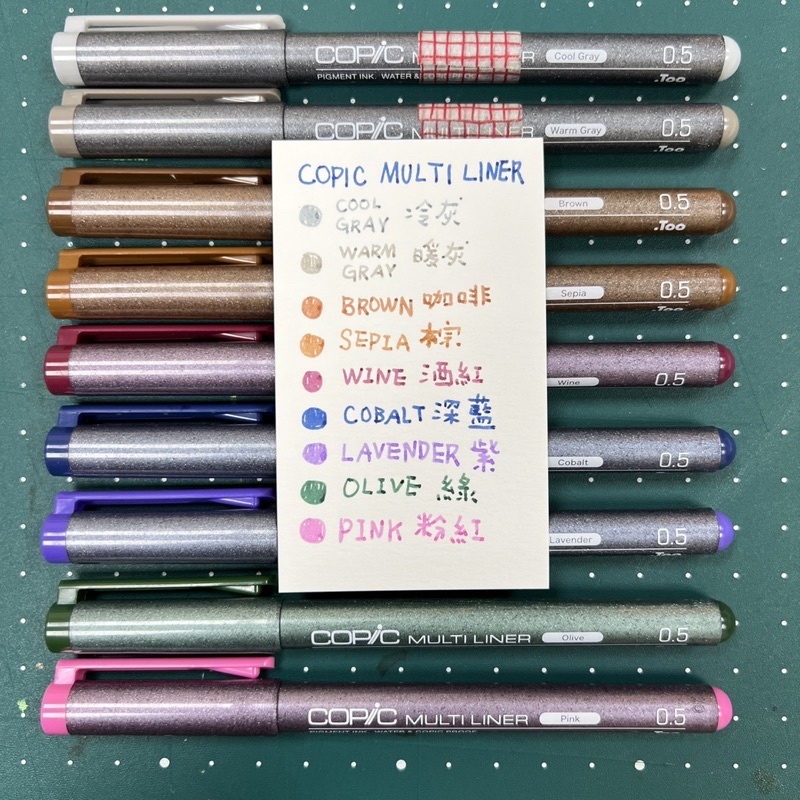 COPIC MULTI LINER Cool Gray 0.5
PIGMENT INK. WATER &
.Too
COPIC MULTI LINER Warm Gray 0.5
.Too
COPIC MULTI LINER
COOL
GRAY 冷灰
WARM
GRAY 暖灰
BROWN 咖啡
SEPIA 棕
WINE 酒紅
COBALT 深藍
LAVENDER 紫
OLIVE 綠
PINK 粉紅
Brown 0.5
.Too
Sepia 0.5
.Too
Wine 0.5
Cobalt 0.5
Lavender 0.5
.Too
COPIC MULTI LINER Olive 0.5
COPIC MULTI LINER Pink 0.5
PIGMENT INK. WATER & COPIC PROOF